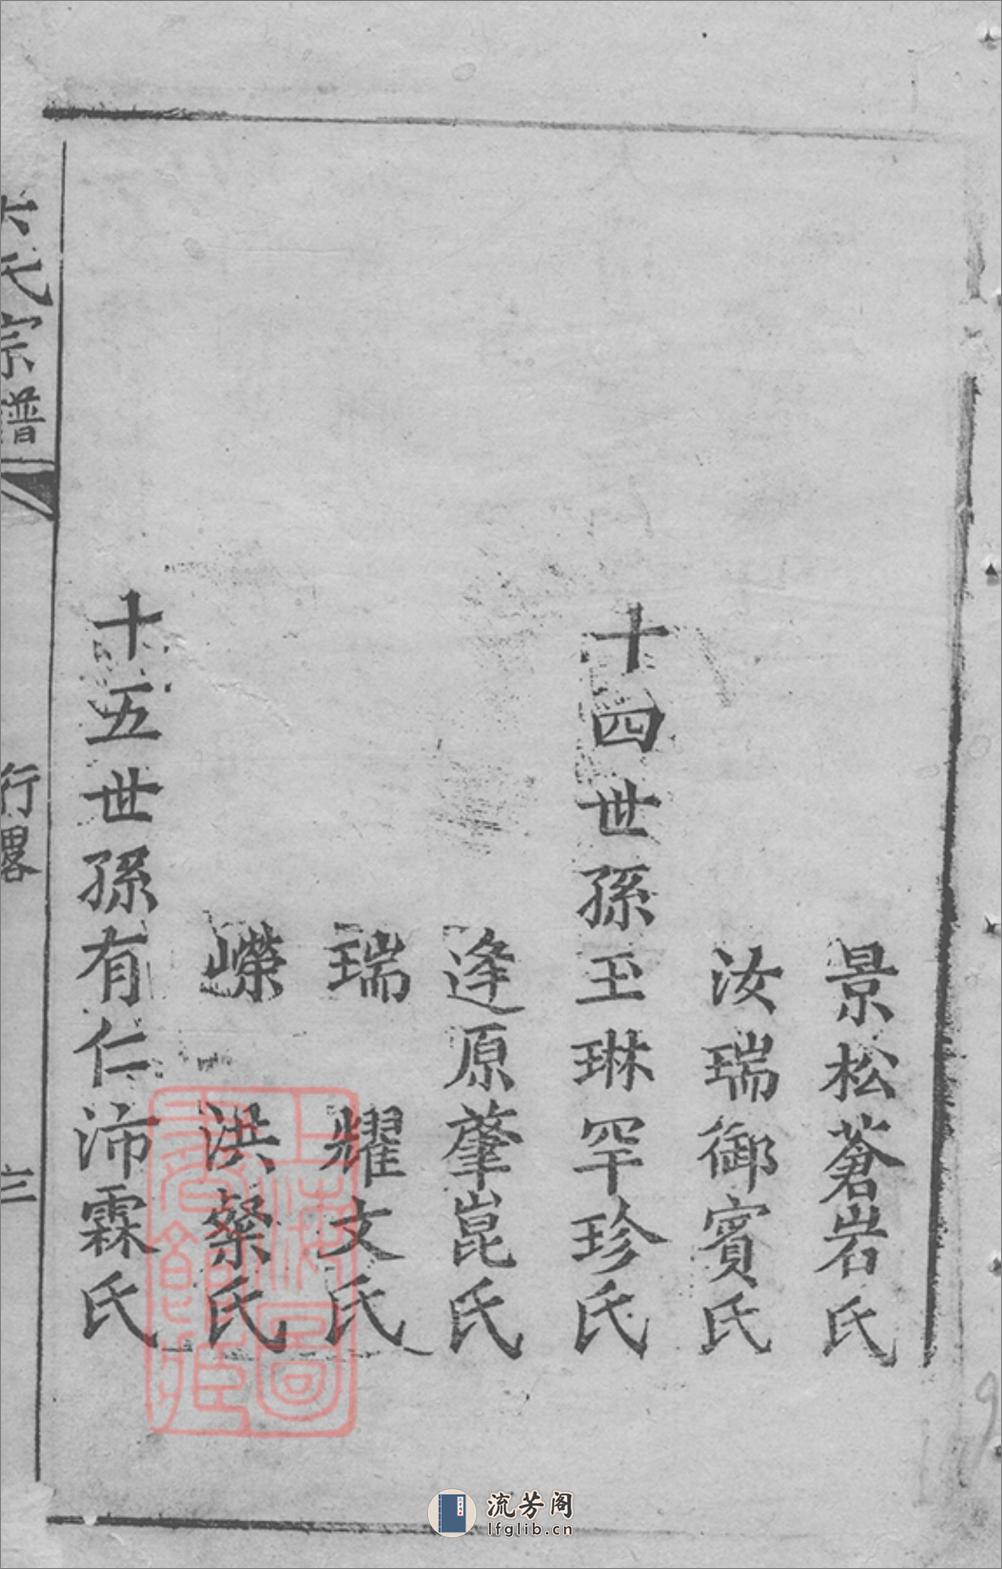 景松蒼岩氏
汝瑞御賓氏
十四世孫玉琳罕珍氏
逢原肇崑氏
瑞 耀文氏
嶸 洪粲氏
十五世孫有仁沛霖氏
氏宗譜
行畧
三
上海圖書館藏
流芳阁
lfglib.cn